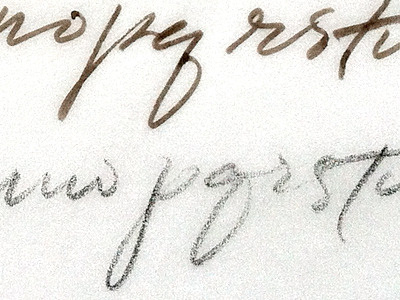 nopq rstu
mnopqrstu